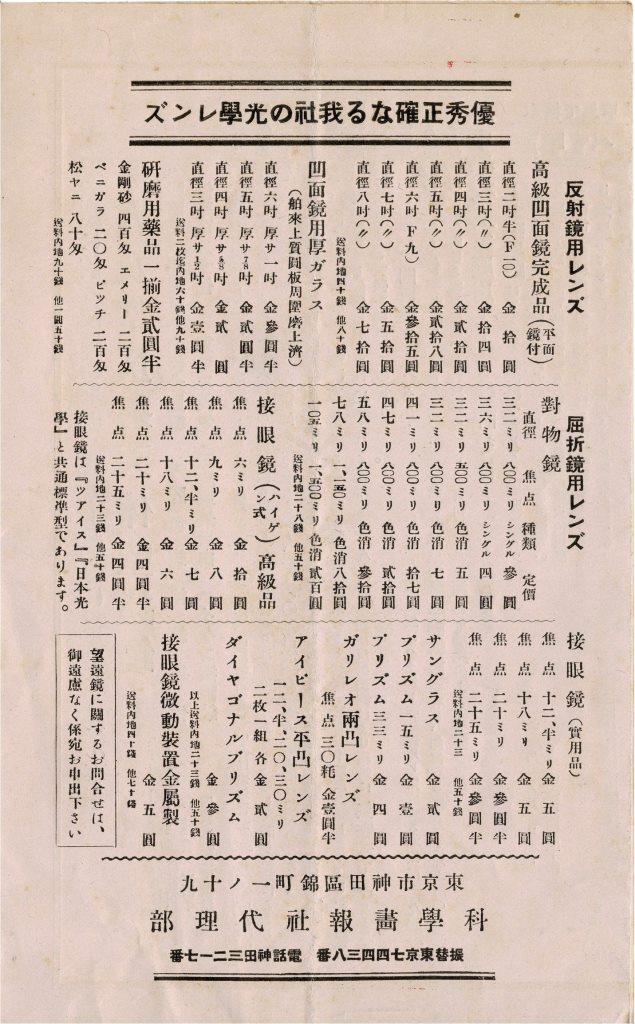 優秀正確なる我社の光學レンズ
反射鏡用レンズ
高級凹面鏡完成品(平面鏡付)
直徑二吋半(F一〇) 金拾圓
直徑三吋(〃) 金拾四圓
直徑四吋(〃) 金貳拾圓
直徑五吋(〃) 金貳拾八圓
直徑六吋 F九) 金參拾五圓
直徑七吋(〃) 金五拾圓
直徑八吋(〃) 金七拾圓
送料內地四十錢 他八十錢
凹面鏡用厚ガラス
(舶來上質圓板周圍磨上濟)
直徑六吋 厚サ一吋 金參圓半
直徑五吋 厚サ7/8吋 金貳圓半
直徑四吋 厚サ5/8吋 金貳圓
直徑三吋 厚サ1/2吋 金壹圓半
送料二枚迄內地六十錢 他九十錢
硏磨用藥品一揃金貳圓半
金剛砂 四百匁 エメリー 二百匁
ベニガラ 二〇匁 ピッチ 二百匁
松ヤニ 八十匁
送料內地九十錢 他一圓五十錢
屈折鏡用レンズ
對物鏡
直徑 焦点 種類 定價
三二ミリ 八〇〇ミリ シングル 參圓
三六ミリ 八〇〇ミリ シングル 四圓
三二ミリ 五〇〇ミリ 色消 五圓
三二ミリ 八〇〇ミリ 色消 七圓
四一ミリ 八〇〇ミリ 色消 拾七圓
四七ミリ 八〇〇ミリ 色消 貳拾圓
五八ミリ 八〇〇ミリ 色消 參拾圓
七八ミリ 一、一五〇ミリ 色消 八拾圓
一〇五ミリ 一、五〇〇ミリ 色消 貳百圓
送料內地二十八錢 他五十錢
接眼鏡(ハイゲン式)高級品
焦点 六ミリ 金拾圓
焦点 九ミリ 金八圓
焦点 十二、半ミリ 金七圓
焦点 十八ミリ 金六圓
焦点 二十ミリ 金四圓半
焦点 二十五ミリ 金四圓半
送料內地二十三錢 他五十錢
接眼鏡は『ツアイス』『日本光
學』と共通標準型であります。
接眼鏡(實用品)
焦点 十二、半ミリ 金五圓
焦点 十八ミリ 金五圓
焦点 二十ミリ 金參圓半
焦点 二十五ミリ 金參圓半
送料內地二十三 他五十錢
サングラス 金貳圓
プリズム一五ミリ 金壹圓
プリズム三三ミリ 金四圓
ガリレオ兩凸レンズ
焦点三〇粍 金壹圓半
アイピース平凸レンズ
一二、半、二〇、三〇ミリ
二枚一組 各金貳圓
ダイヤゴナルプリズム
金參圓
以上送料內地二十三錢 他五十錢
接眼鏡微動裝置金屬製
金五圓
送料內地四十錢 他七十錢
望遠鏡に關するお問合せは、
御遠慮なく係宛お申出下さい
東京市神田區錦町一ノ十九
科學畫報社代理部
振替東京七四四三八番 電話神田三二一七番